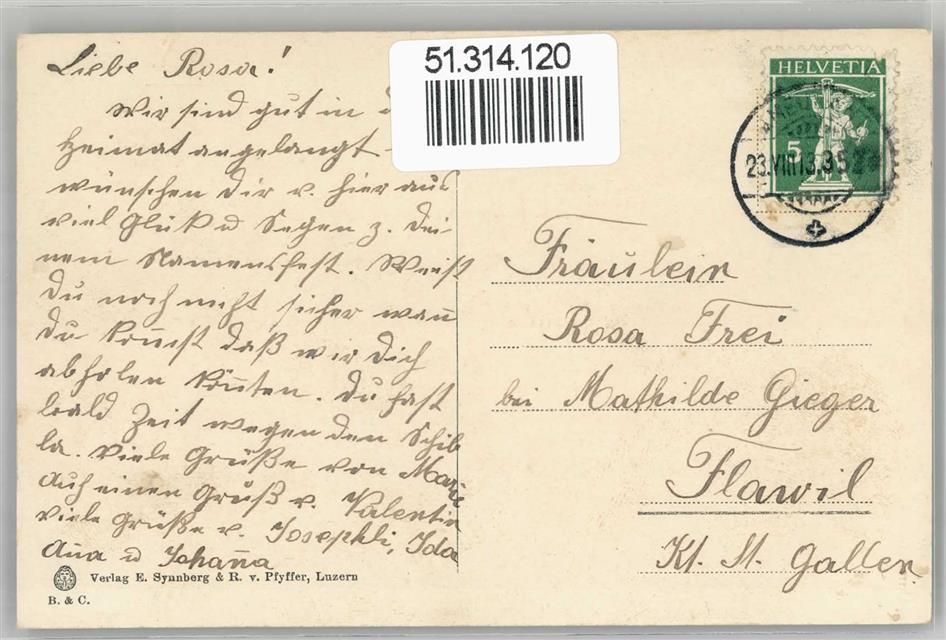 51.314.120
Liebe Rosa!
Wir sind gut in
Heimat angelangt
wünschen Dir v. hier aus
viel Glük u Segen z. Dei
nem Namensfest. Weist
Du noch nicht sicher wañ
Du komst daß wir Dich
abholen köñten. Du hast
bald Zeit wegen den Schib
la. Viele Grüße von Marie
Auf einen Gruß v. Valentin
viele Grüße v. Josephli, Ida
Aña u Johaña
Verlag E. Synnberg & R. v. Pfyffer, Luzern
B. & C.
HELVETIA
5
23.VIII 13.3
Fräulein
Rosa Frei
bei Mathilde Gieger
Flawil
Kt. St. Gallen